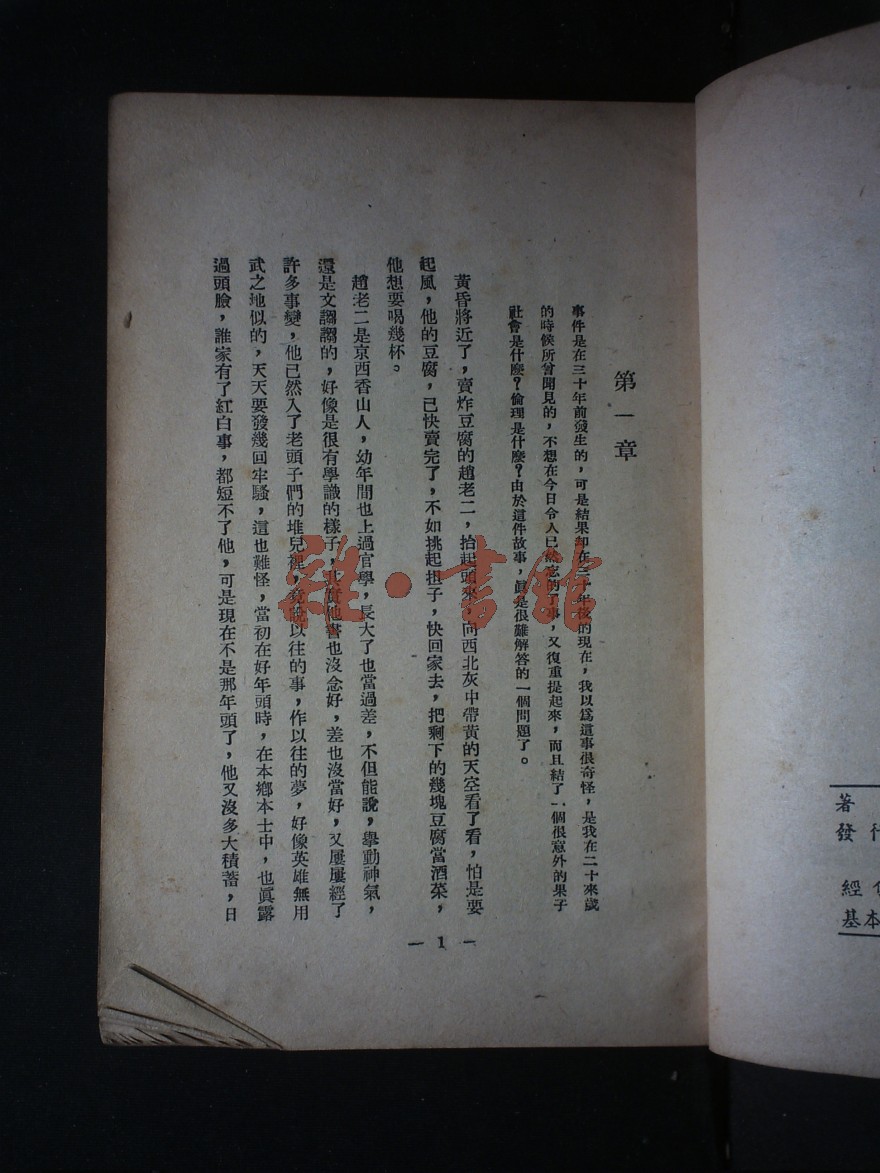 著
發行
經
基本
第一章
事件是在三十年前發生的，可是結果却在三十年後的現在，我以爲這事很奇怪，是我在二十來歲
的時候所曾聞見的，不想在今日令人已然忘的了事，又復重提起來，而且結了一個很意外的果子
社會是什麼？倫理是什麼？由於這件故事，眞是很難解答的一個問題了。
黃昏將近了，賣炸豆腐的趙老二，抬起頭來，向西北灰中帶黃的天空看了看，怕是要
起風，他的豆腐，已快賣完了，不如挑起担子，快回家去，把剩下的幾塊豆腐當酒菜，
他想要喝幾杯。
趙老二是京西香山人，幼年間也上過官學，長大了也當過差，不但能說，舉動神氣，
還是文謅謅的，好像是很有學識的樣子，其實他書也沒念好，差也沒當好，又屢屢經了
許多事變，他已然入了老頭子們的堆兒裡，竟說以往的事，作以往的夢，好像英雄無用
武之地似的，天天要發幾回牢騷，這也難怪，當初在好年頭時，在本鄉本士中，也眞露
過頭臉，誰家有了紅白事，都短不了他，可是現在不是那年頭了，他又沒多大積蓄，日
— 1 —
雜·書館